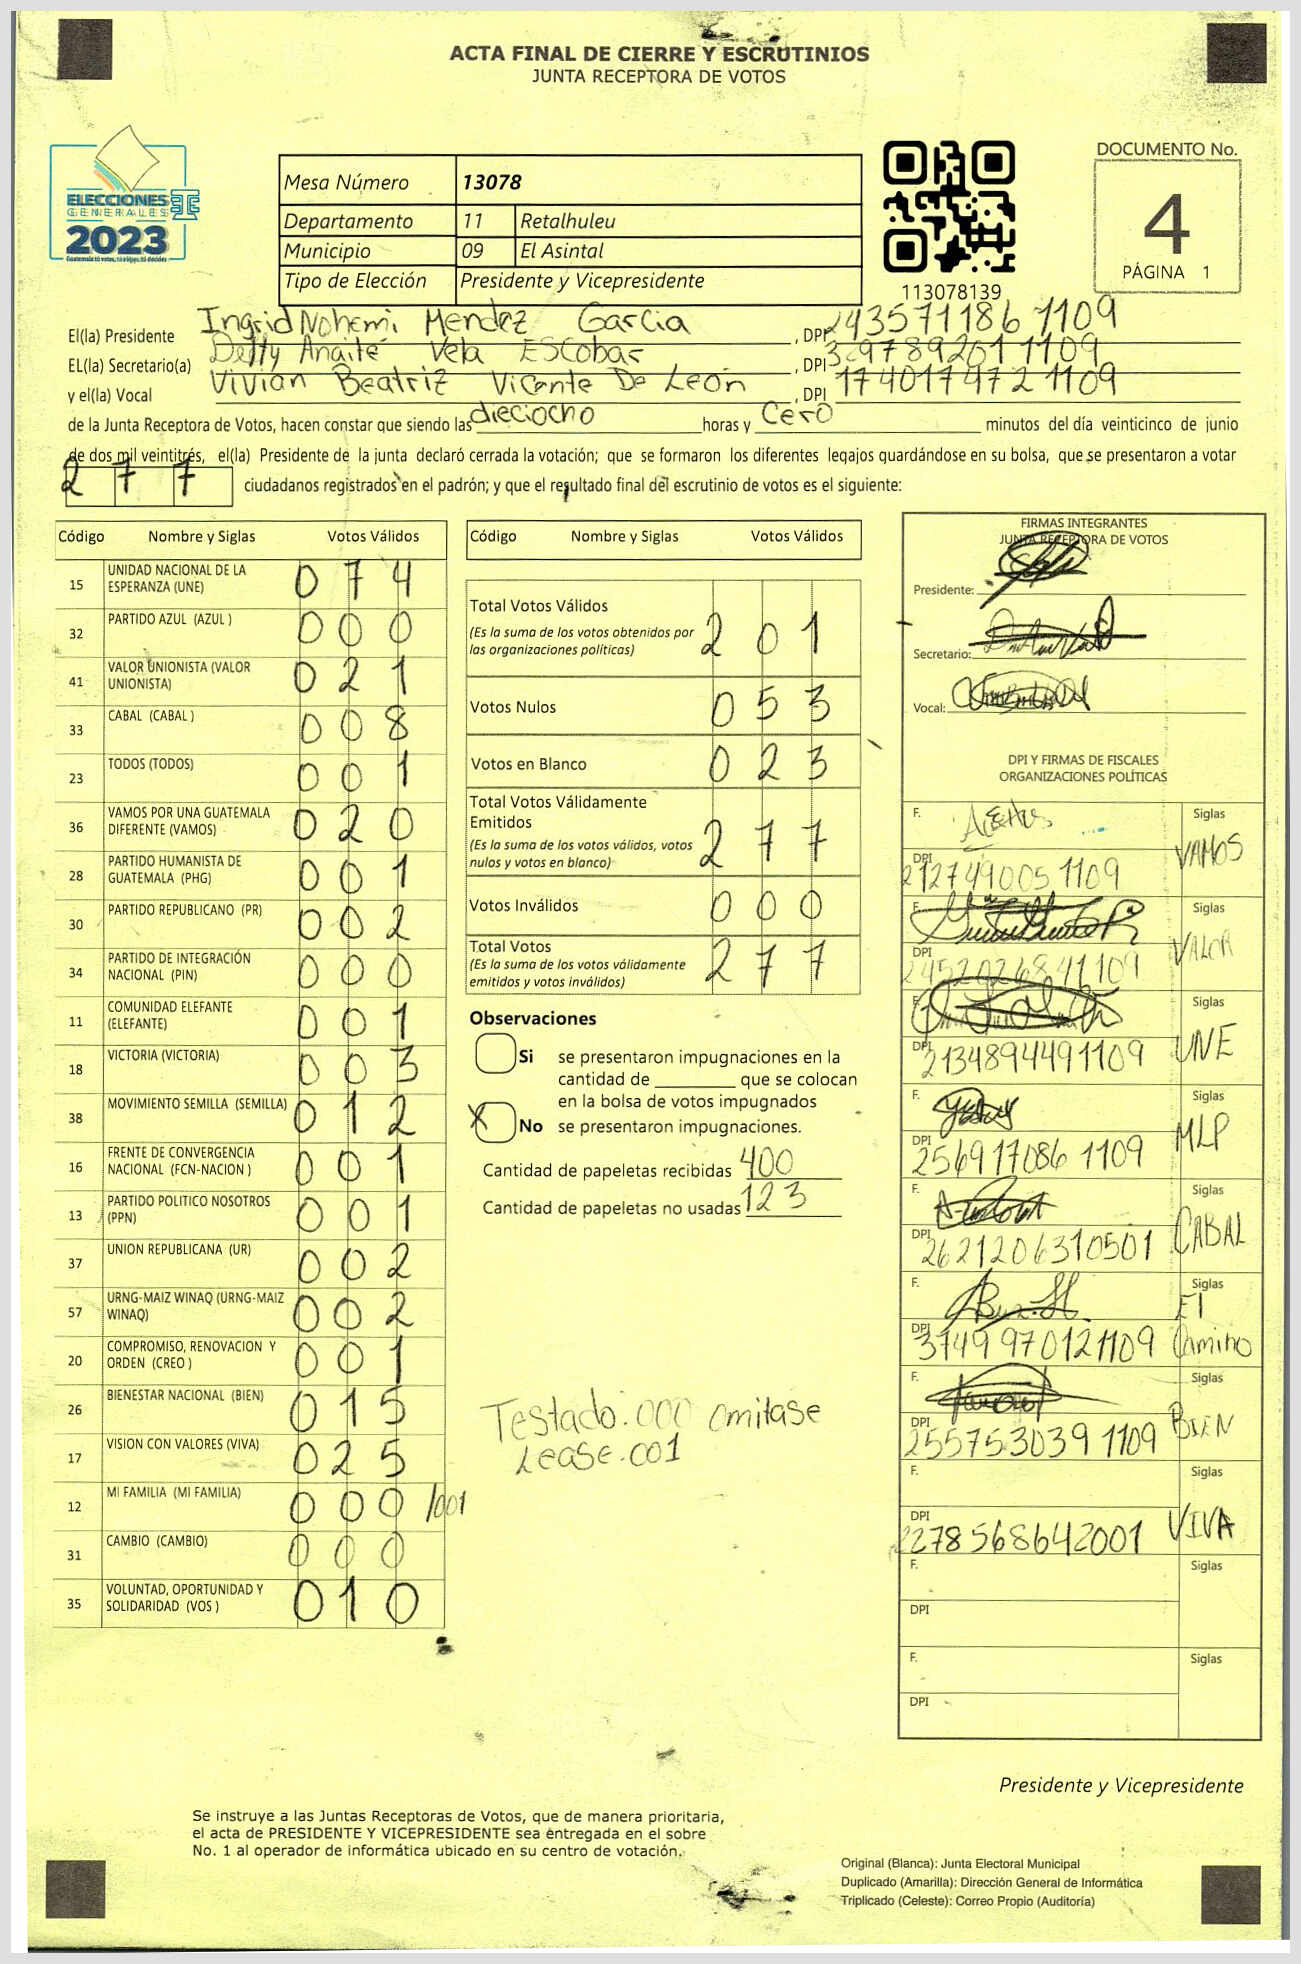 ACTA FINAL DE CIERRE Y ESCRUTINIOS
JUNTA RECEPTORA DE VOTOS
ELECCIONES
GENERALES
2023
Mesa Número 13078
Departamento 11 Retalhuleu
Municipio 09 El Asintal
Tipo de Elección Presidente y Vicepresidente
113078139
DOCUMENTO No.
4
PÁGINA 1
El(la) Presidente Ingrid Nohemi Mendez Garcia, DPI 243571186 1109
EL(la) Secretario(a) Anaité Vela Escobar, DPI 1109
y el(la) Vocal Vivian Beatriz Vicente De León, DPI 174017972 1109
de la Junta Receptora de Votos, hacen constar que siendo las dieciocho horas y Cero minutos del día veinticinco de junio
de dos mil veintitrés, el(la) Presidente de la junta declaró cerrada la votación; que se formaron los diferentes legajos guardándose en su bolsa, que se presentaron a votar
277 ciudadanos registrados en el padrón; y que el resultado final del escrutinio de votos es el siguiente:
Código Nombre y Siglas Votos Válidos
15 UNIDAD NACIONAL DE LA ESPERANZA (UNE) 074
32 PARTIDO AZUL (AZUL ) 000
41 VALOR UNIONISTA (VALOR UNIONISTA) 021
33 CABAL (CABAL ) 008
23 TODOS (TODOS) 001
36 VAMOS POR UNA GUATEMALA DIFERENTE (VAMOS) 020
28 PARTIDO HUMANISTA DE GUATEMALA (PHG) 001
30 PARTIDO REPUBLICANO (PR) 002
34 PARTIDO DE INTEGRACIÓN NACIONAL (PIN) 000
11 COMUNIDAD ELEFANTE (ELEFANTE) 001
18 VICTORIA (VICTORIA) 003
38 MOVIMIENTO SEMILLA (SEMILLA) 012
16 FRENTE DE CONVERGENCIA NACIONAL (FCN-NACION ) 001
13 PARTIDO POLITICO NOSOTROS (PPN) 001
37 UNION REPUBLICANA (UR) 002
57 URNG-MAIZ WINAQ (URNG-MAIZ WINAQ) 002
20 COMPROMISO, RENOVACION Y ORDEN (CREO ) 001
26 BIENESTAR NACIONAL (BIEN) 015
17 VISION CON VALORES (VIVA) 025
12 MI FAMILIA (MI FAMILIA) 000 /001
31 CAMBIO (CAMBIO) 000
35 VOLUNTAD, OPORTUNIDAD Y SOLIDARIDAD (VOS ) 010
Código Nombre y Siglas Votos Válidos
Total Votos Válidos 201
(Es la suma de los votos obtenidos por
las organizaciones políticas)
Votos Nulos 053
Votos en Blanco 023
Total Votos Válidamente
Emitidos 277
(Es la suma de los votos válidos, votos
nulos y votos en blanco)
Votos Inválidos 000
Total Votos 277
(Es la suma de los votos válidamente
emitidos y votos inválidos)
Observaciones
Si se presentaron impugnaciones en la
cantidad de ________ que se colocan
en la bolsa de votos impugnados
X No se presentaron impugnaciones.
Cantidad de papeletas recibidas 400
Cantidad de papeletas no usadas 123
Testado.000 omitase
Lease.001
FIRMAS INTEGRANTES
JUNTA RECEPTORA DE VOTOS
Presidente:
Secretario:
Vocal:
DPI Y FIRMAS DE FISCALES
ORGANIZACIONES POLÍTICAS
F. Siglas
DPI 212749005 1109 VAMOS
F. Siglas
DPI 2452026841109 VALOR
F. Siglas
DPI 2134894491109 UNE
F. Siglas
DPI 256917086 1109 MLP
F. Siglas
DPI 2621206310501 CABAL
F. Siglas
DPI 3749970121109 El Camino
F. Siglas
DPI 255753039 1109 BIEN
F. Siglas
DPI 2278568642001 VIVA
F. Siglas
DPI
F. Siglas
DPI
Presidente y Vicepresidente
Se instruye a las Juntas Receptoras de Votos, que de manera prioritaria,
el acta de PRESIDENTE Y VICEPRESIDENTE sea entregada en el sobre
No. 1 al operador de informática ubicado en su centro de votación.
Original (Blanca): Junta Electoral Municipal
Duplicado (Amarilla): Dirección General de Informática
Triplicado (Celeste): Correo Propio (Auditoría)